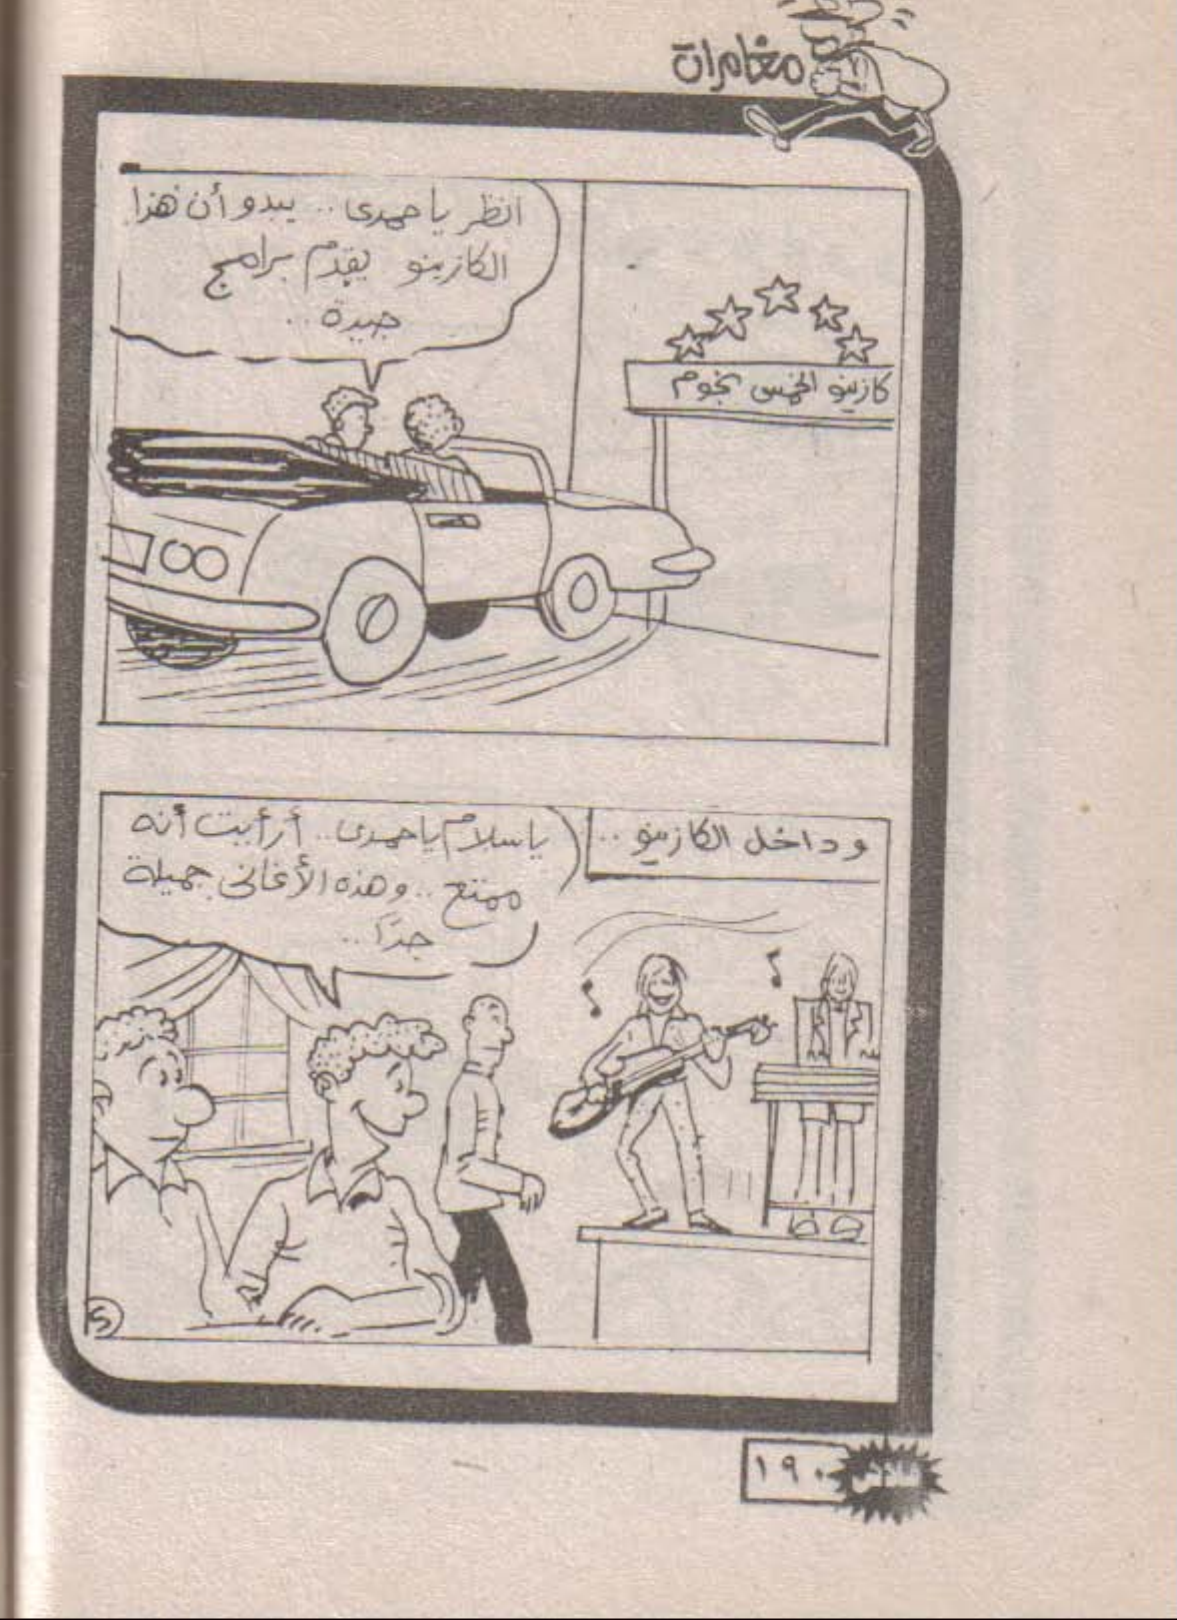 مغامرات
انظر ياحمدى.. يبدو أن هذا
الكازينو يقدّم برامج
جيدة..
كازينو الخمس نجوم
وداخل الكازينو..
ياسلام ياحمدى.. أرأيت أنه
ممتع.. وهذه الأغانى جميلة
جدًا..
١٩٠